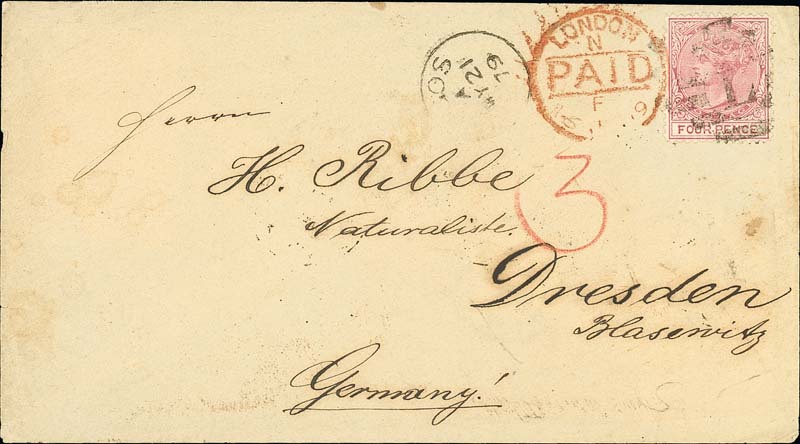 LONDON
N
PAID
F
79
21
FOUR-PENCE
Herrn
H. Ribbe
3
Naturaliste.
Dresden
Blasewitz
Germany!